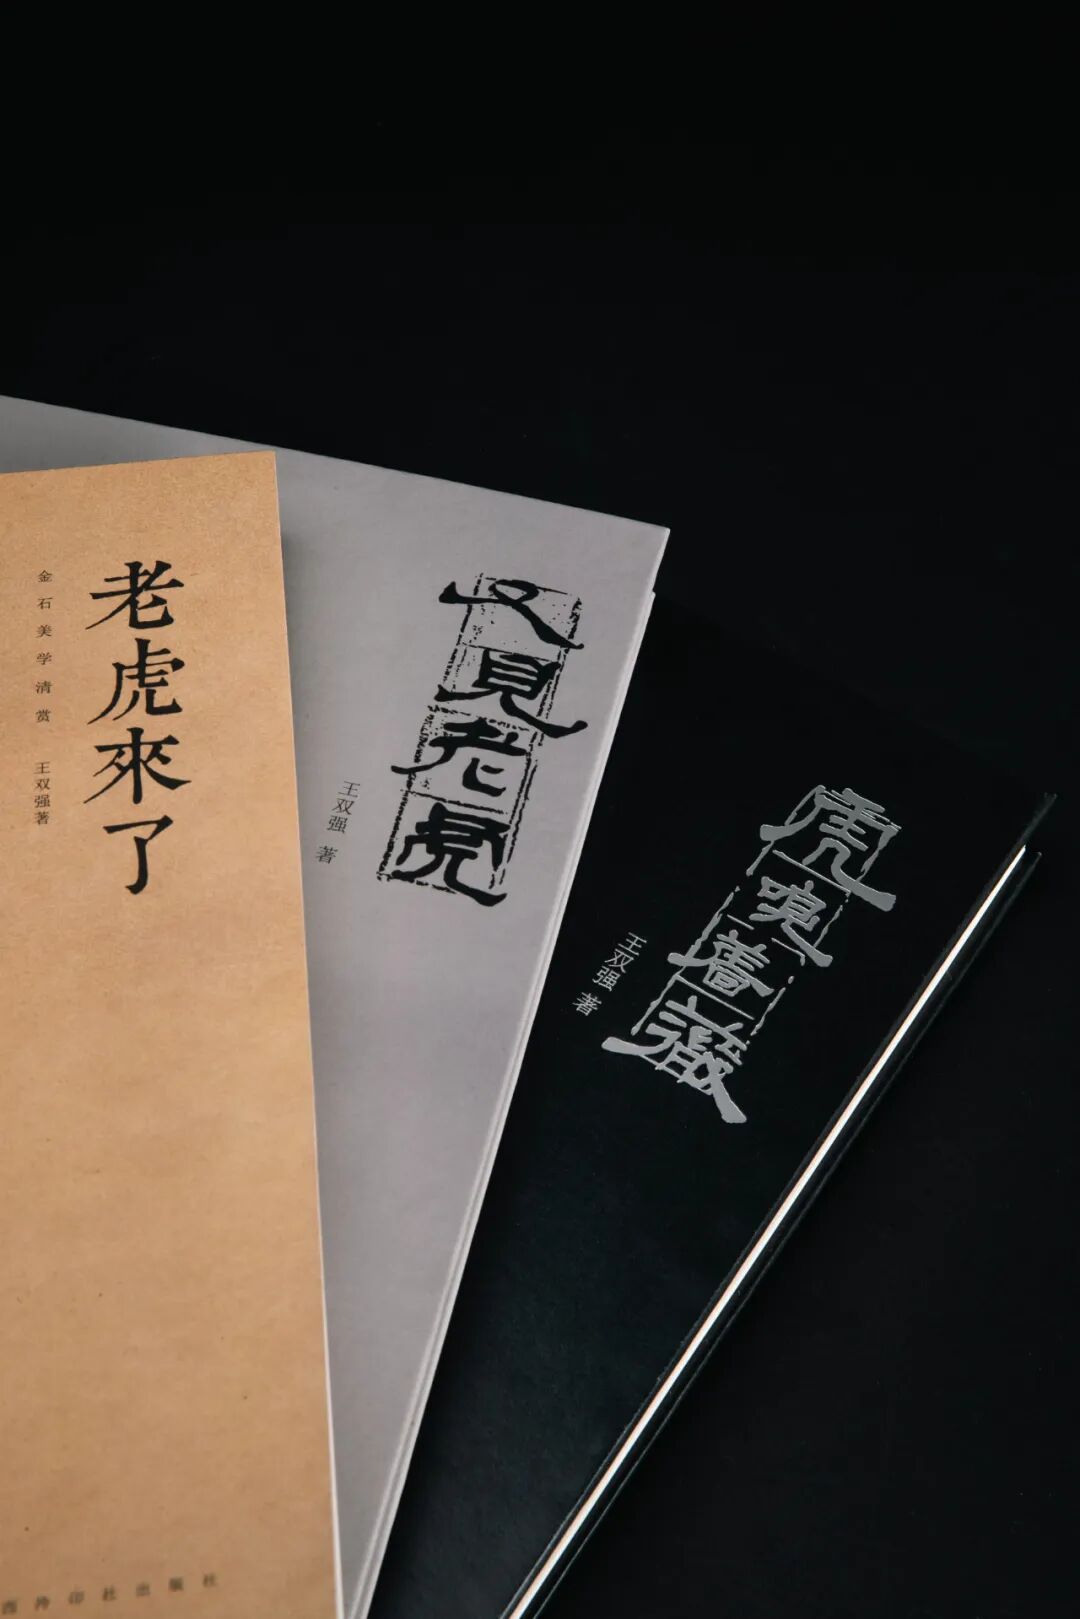 老虎來了
金石美学清赏 王双强著
西泠印社出版社
又見老虎
王双强 著
虎嗅薔薇
王双强 著